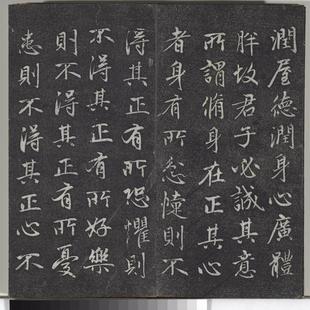 潤屋德潤身心廣體
胖故君子必誠其意
所謂脩身在正其心
者身有所忿懥則不
得其正有所恐懼則
不得其正有所好樂
則不得其正有所憂
患則不得其正心不